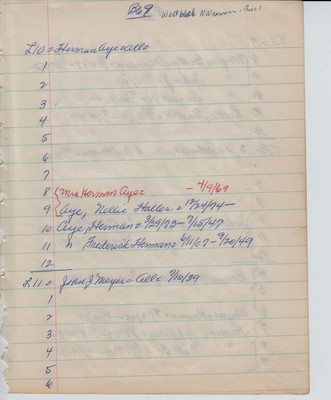 B69 West block N Wanner
L10 = Herman Aye = all
1
2
3
4
5
6
7
8 Mrs Herman Ayer - 4/9/69
9 Aye, Nellie Haller = 12/24/74-
10 Aye, Herman = 3/29/73-7/15/47
11 " Frederick Herman = 6/11/07-9/20/49
12
L11 = John J Meyer = all 7/10/39
1
2
3
4
5
6